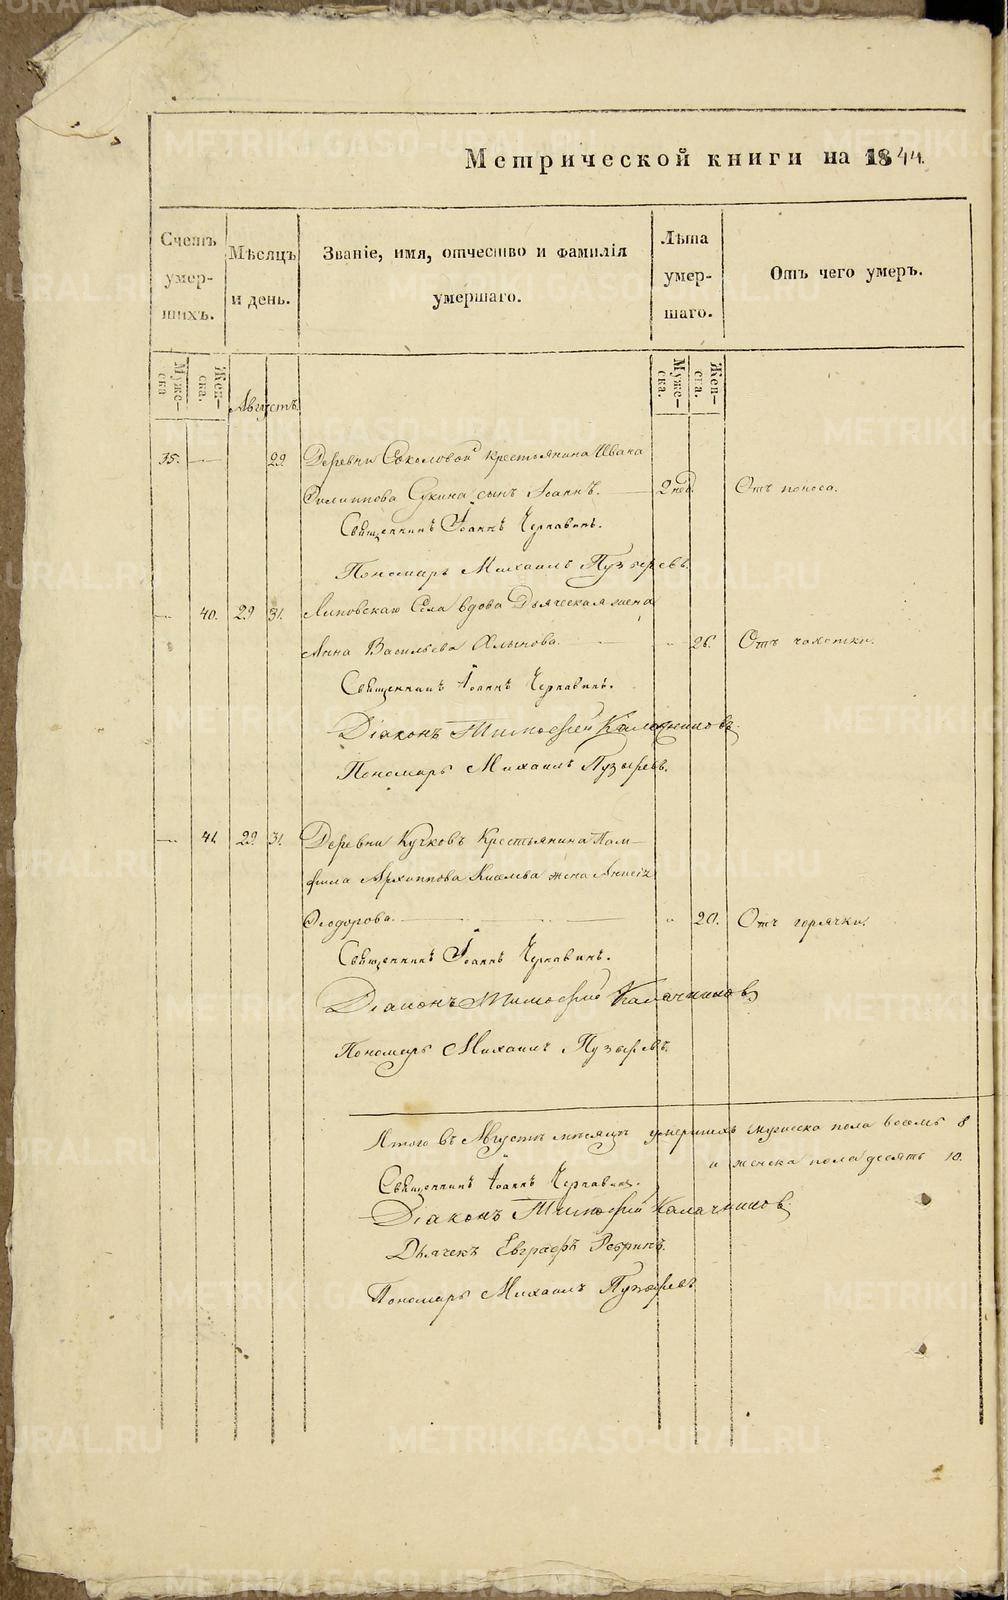 Метрической книги на 1844.
Счетъ умер-шихъ.
Мѣсяцъ и день.
Званіе, имя, отчество и фамилія умершаго.
Лѣта умер-шаго.
Отъ чего умеръ.
Муже-ска
Жен-ска.
Августъ.
Муже-ска.
Жен-ска.
35. — 29. Деревни Соколовой крестьянина Ивана
Филиппова Сукина сынъ Іоаннъ. — 2 нед. Отъ поноса.
Священникъ Іоаннъ Чернавинъ.
Пономарь Михаилъ Пузыревъ.
— 40. 29 31. Липовскаго Села вдова Дьяческая жена
Анна Васильева — „ 26. Отъ чахотки.
Священникъ Іоаннъ Чернавинъ.
Діаконъ Тимофей Калачниковъ.
Пономарь Михаилъ Пузыревъ.
— 41. 29. 31. Деревни Кучковъ Крестьянина Пам-
фила Архиппова Киселева жена Анисія
Ѳеодорова. — „ 20. Отъ горячки.
Священникъ Іоаннъ Чернавинъ.
Діаконъ Тимофей Калачниковъ
Пономарь Михаилъ Пузыревъ.
Итого въ Августѣ мѣсяцѣ умершихъ мужеска пола восемь 8
и женска пола десять 10.
Священникъ Іоаннъ Чернавинъ.
Діаконъ Тимофей Калачниковъ
Дьячекъ Евграфъ Ребринъ.
Пономарь Михаилъ Пузыревъ
METRIKI.GASO-URAL.RU